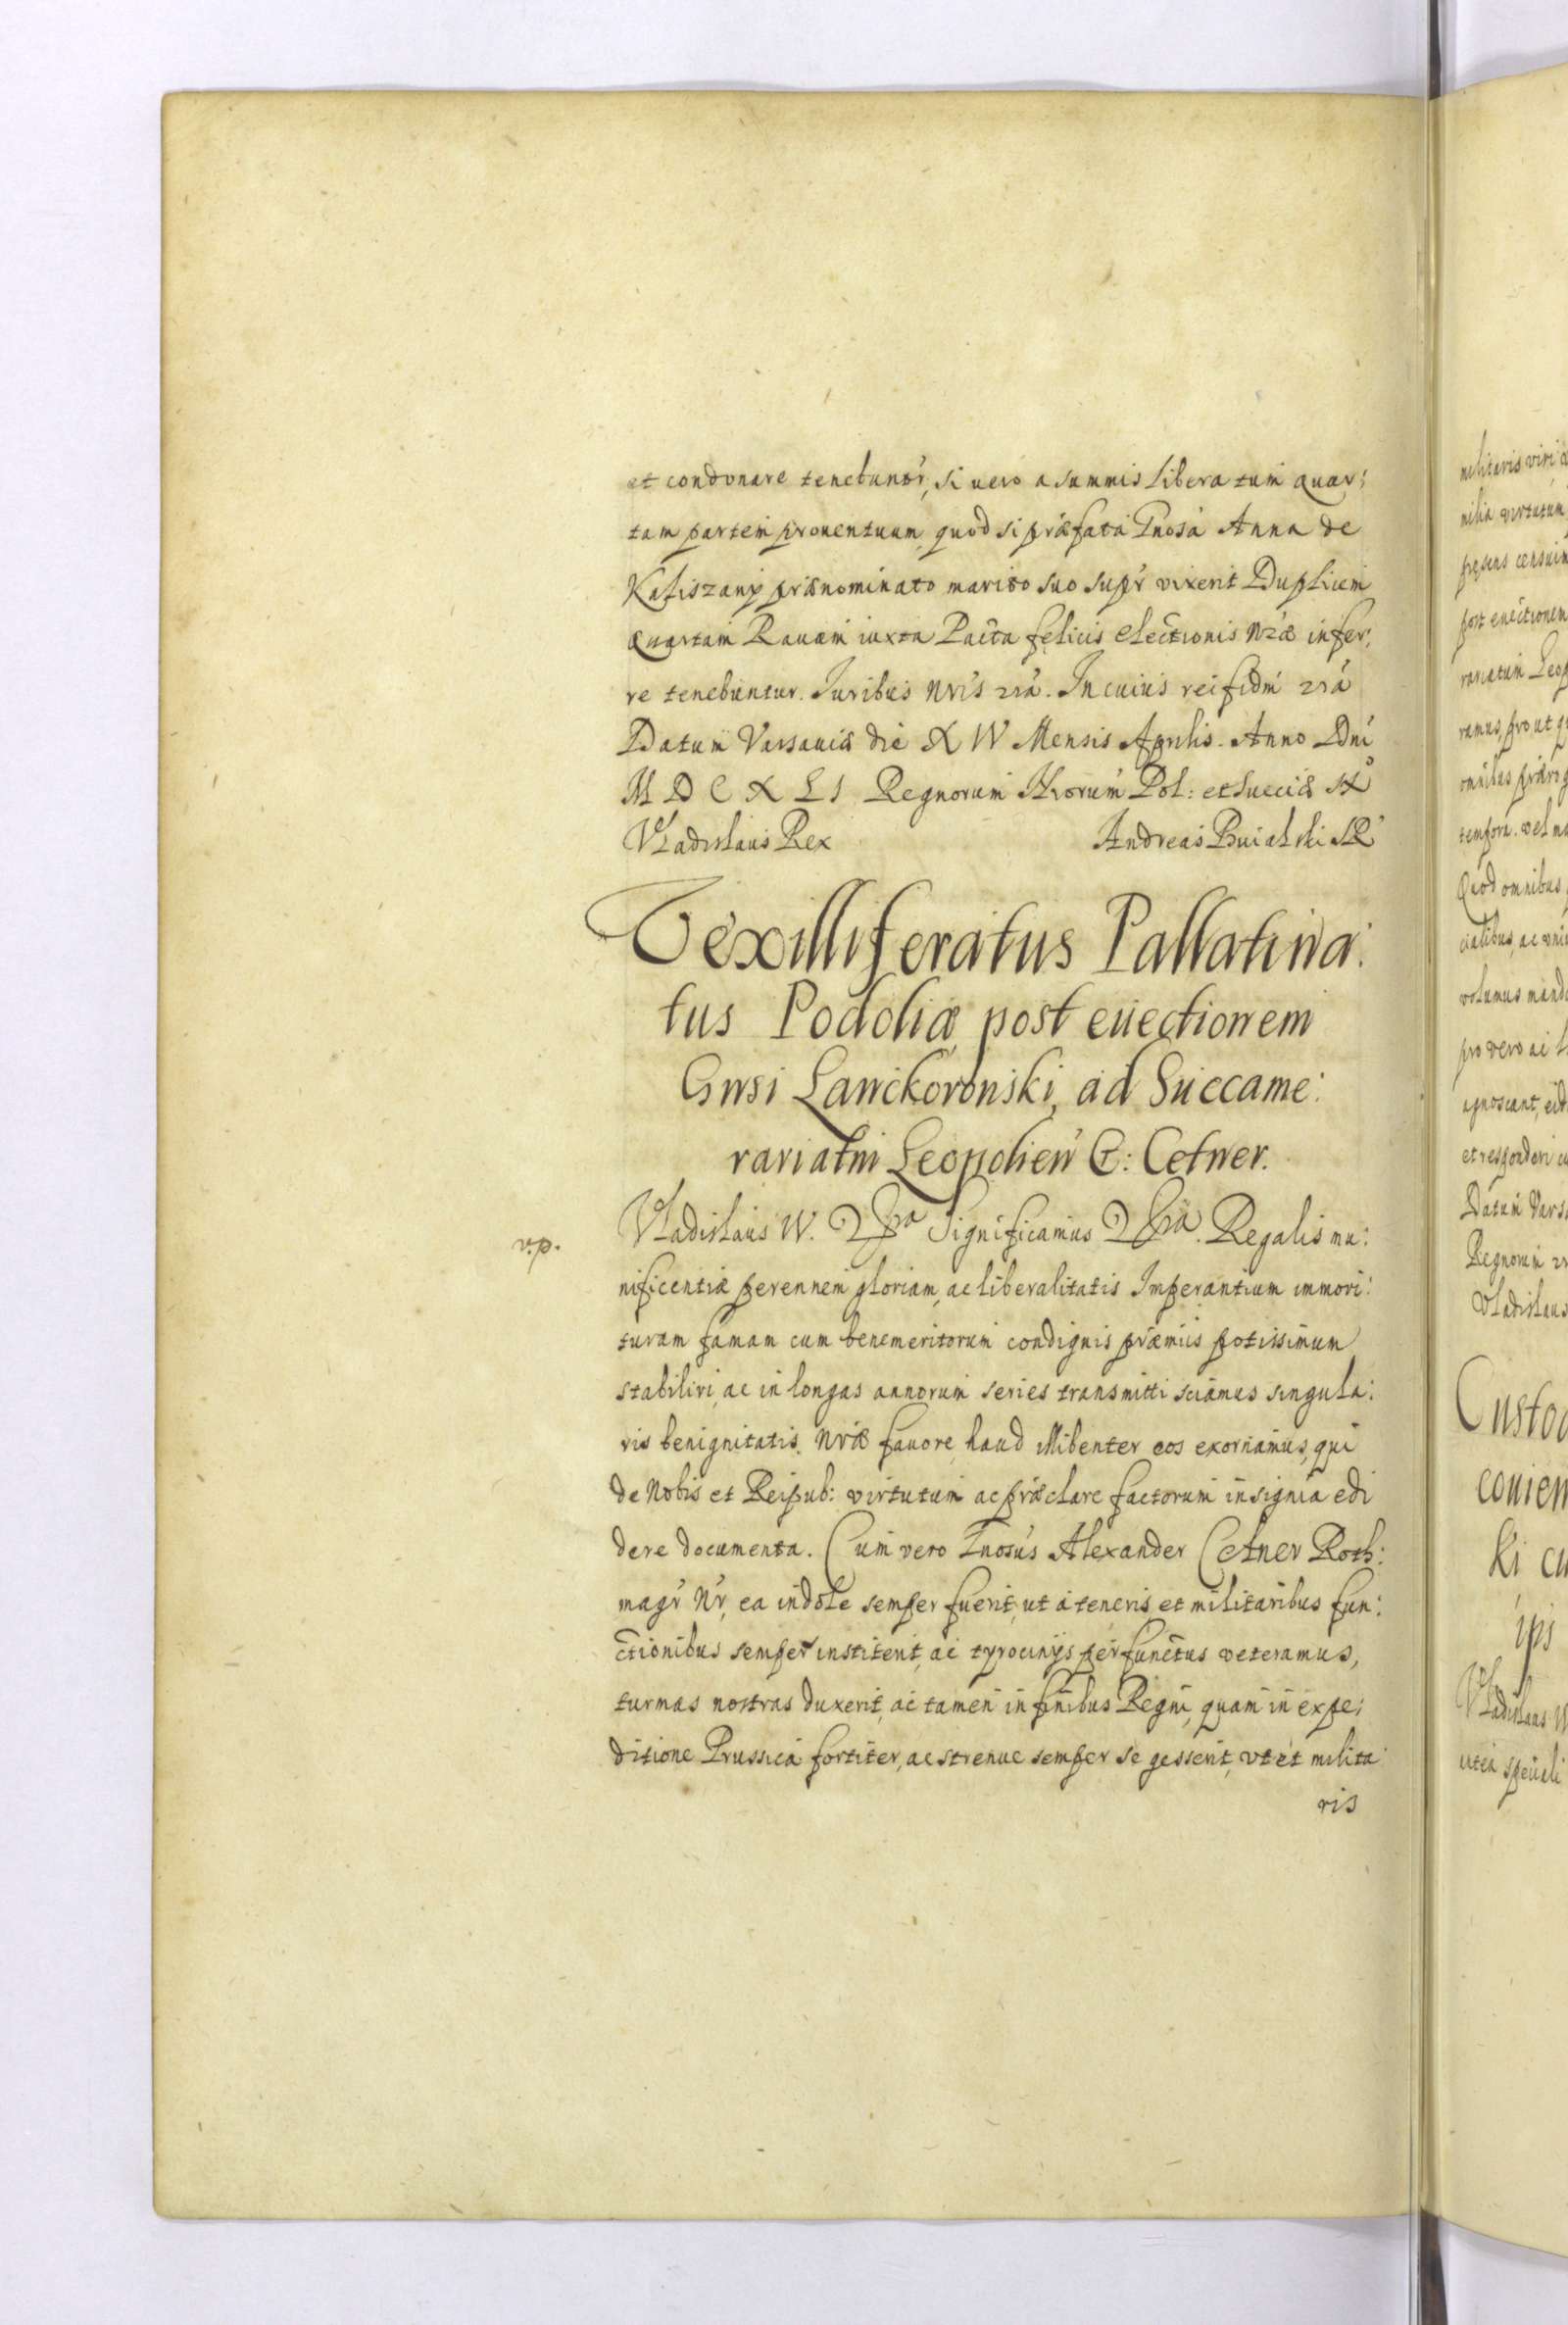 et condonare tenebunt'r, si uero a summis libera tum quar:
tam partem prouentuum, quod si præfata Gnosa Anna de
Kaliszany prænominato marito suo sup'r vixerit Duplicem
Quartam Rauam iuxta Pacta felicis electionis nræ infer:
re tenebuntur. Iuribus nris Incuius rei fidm
Datum Varsauiæ die XIV Mensis Aprilis. Anno Dni
M D C X L I Regnorum Nrorum Pol: et Sueciæ IX
Vladislaus Rex Andreas Buialski SR
Vexilliferatus Pallatina:
tus Podoliæ post euectionem
Gnsi Lanckoronski, ad Succame:
rariatm Leopolien G: Cetner.
Vladislaus IV. Significamus Regalis mu:
nificentiæ perennem gloriam, ac liberalitatis Imperantium immori:
turam famam cum benemeritorum condignis præmiis potissimum
stabiliri, ac in longas annorum series transmitti sciamus singula:
ris benignitatis nræ fauore haud illibenter eos exornamus, qui
de Nobis et Reipub: virtutum ac præclare factorum insignia edi
dere documenta. Cum vero Gnosus Alexander Cetner Roth:
mag'r N'r, ea indole semper fuerit, ut a teneris et militaribus fun:
ctionibus semper institerit, ac tyrocinijs perfunctus veteramus,
turmas nostras duxerit, ac tamen in finibus Regni, quam in expe:
ditione Prussica fortiter, ac strenue semper se gesserit, vt et milita
ris
militaris viri
milia virtutum
post euectionem
rariatum Leop
ramus, prout
omnibus prærog
tempora. vel
Quod omnibus
cialibus, ac
volumus manda
pro vero ac
agnoscant,
et responderi
Datum Vars
Regnorum
Vladislaus
Custod
coniem
ki cu
ips
Vladislaus